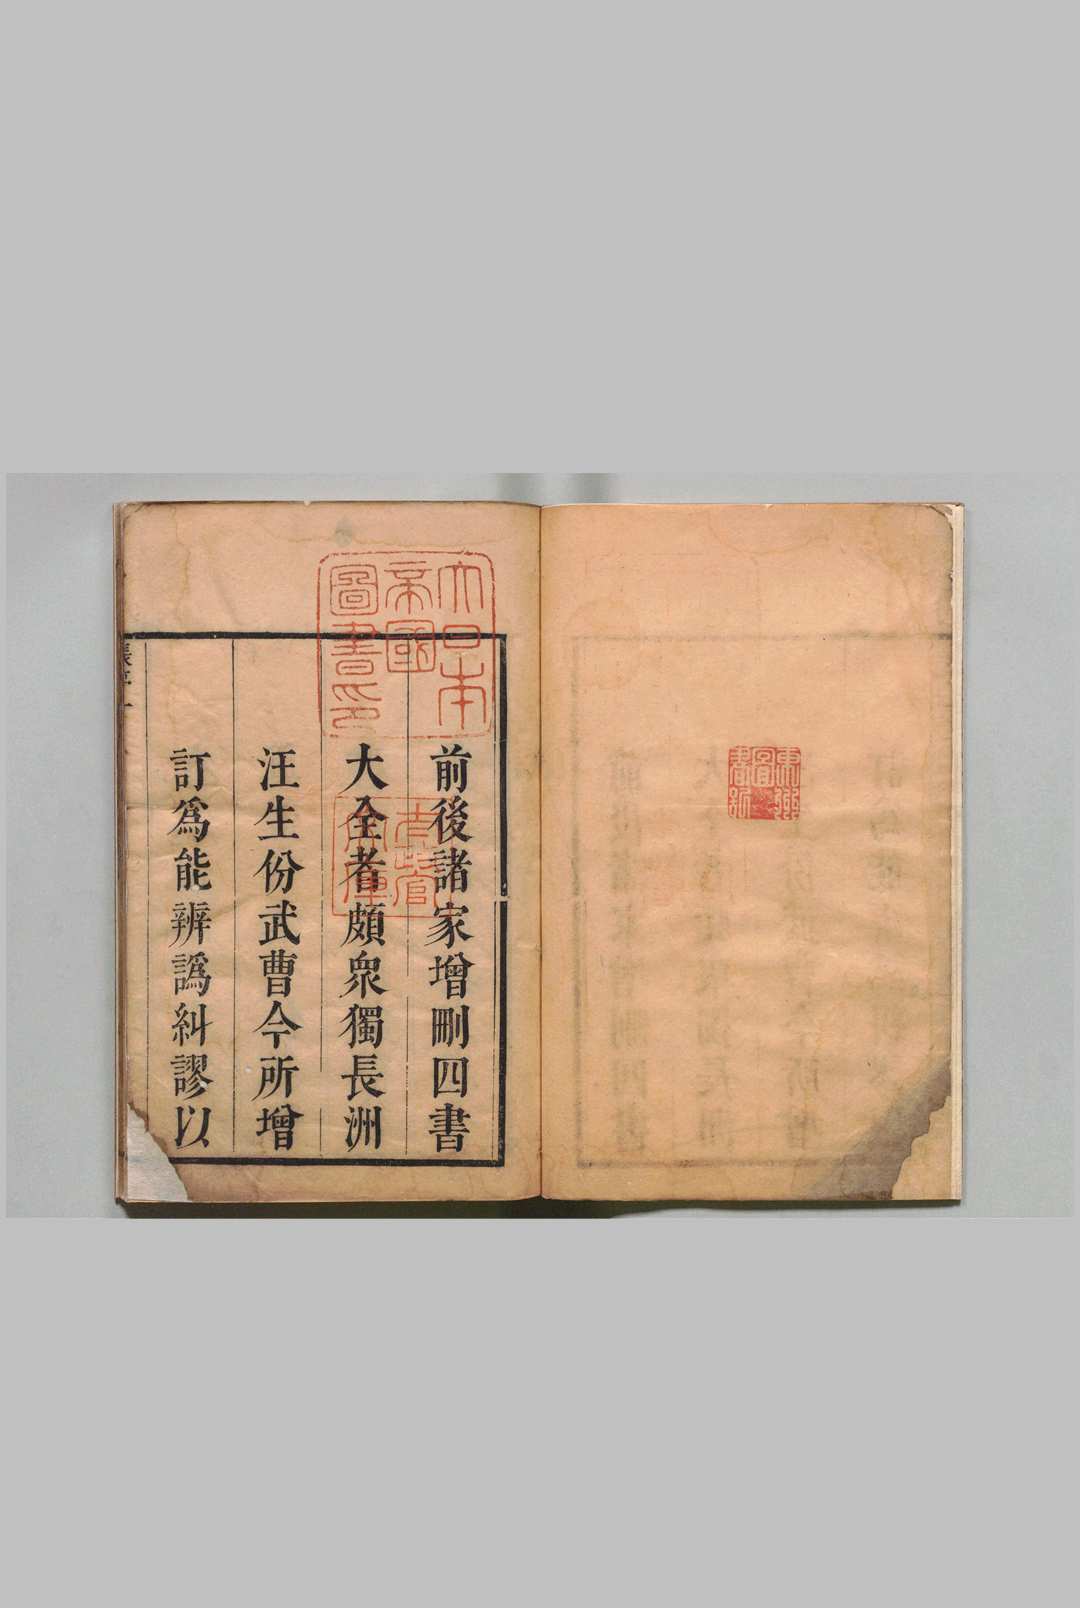 前後諸家增刪四書
大全者頗衆獨長洲
汪生份武曹今所增
訂為能辨譌糾謬以
大日本
帝國
圖書印